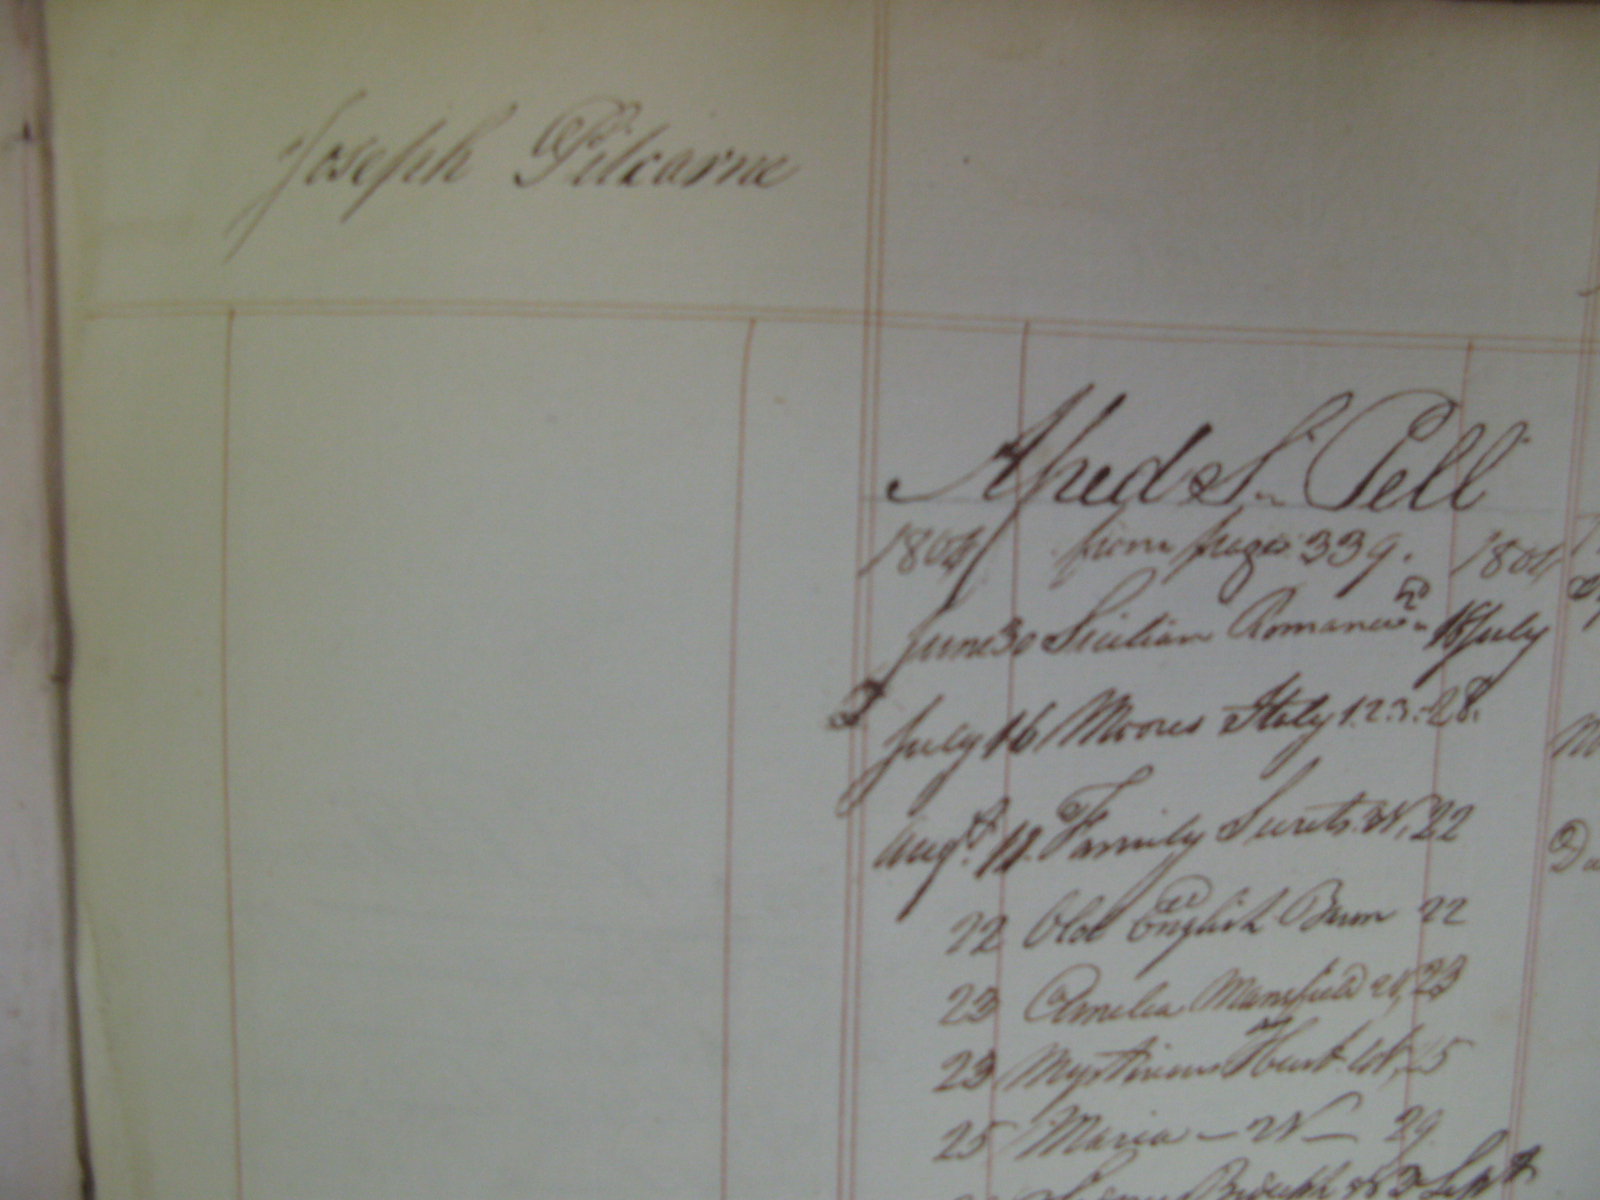 Joseph Pilcairne
Alfred S. Pell
1804 from page 339. 1804
June 30 Sicilian Romance 16 July
July 16 Moores Italy 1.2.3. 28.
Aug.t 11. Family Secrets 22
22 Old English Baron 22
23 Amelia Mansfield 23
23 Mysterious 25
25 Maria 29
Sept